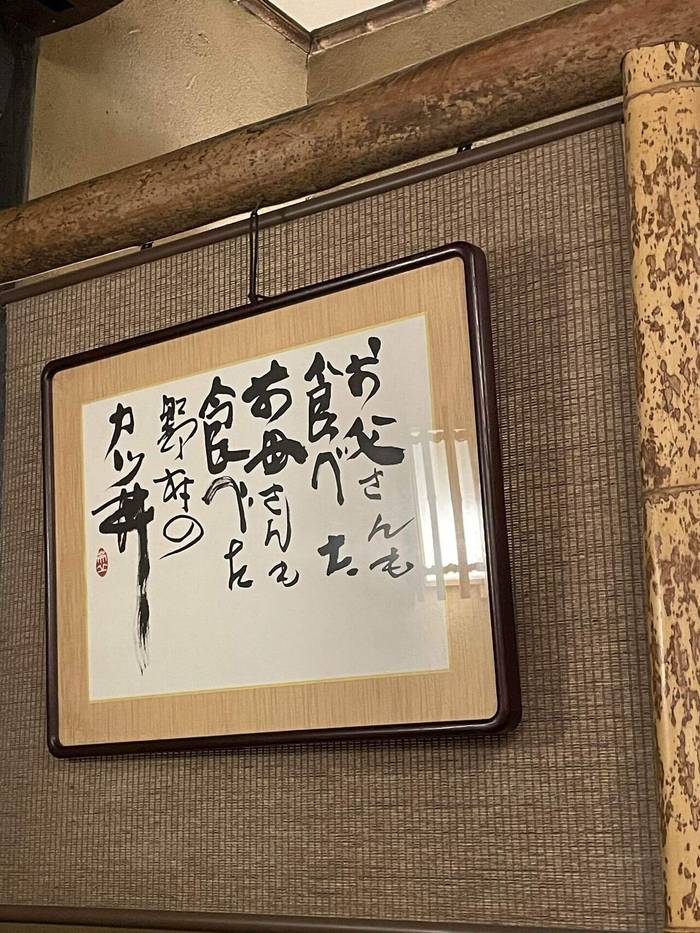 お父さんも
食べた
お母さんも
食べた
野村の
カツ丼